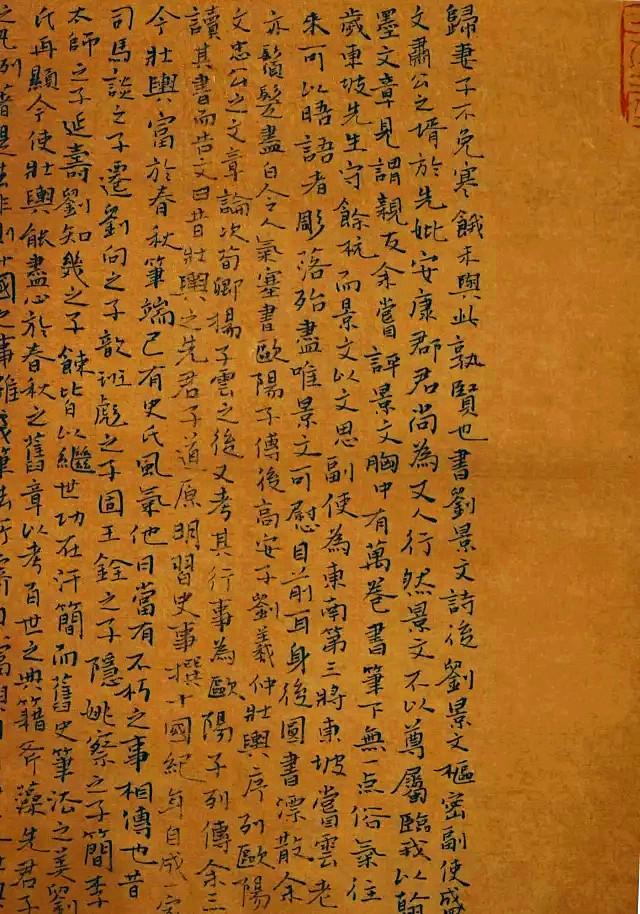 歸妻子不免寒餓未與此孰賢也書劉景文詩後劉景文樞密副使盛
文肅公之壻於先妣安康郡君尚為丈人行然景文不以尊屬臨我以翰
墨文章見謂親友余嘗評景文胸中有萬卷書筆下無一点俗氣往
歲東坡先生守餘杭而景文以文思副使為東南第三將東坡嘗雲老
來可以晤語者彫落殆盡唯景文可慰目前耳身後圖書漂散余
亦鬚髮盡白令人氣塞書歐陽子傳後高安子劉羲仲壯輿序列歐陽
文忠公之文章論次荀卿揚子雲之後又考其行事為歐陽子列傳余三
讀其書而告文曰昔壯輿之先君子道原明習史事撰十國紀年自成一家
今壯輿富於春秋筆端已有史氏風氣他日當有不朽之事相傳也昔
司馬談之子遷劉向之子歆班彪之子固王銓之子隱姚察之子簡李
太師之子延壽劉知幾之子餗皆以繼世功在汗簡而舊史筆法之美劉
氏再顯今使壯輿能盡心於春秋之舊章以考百世之典籍斧藻先君子
之凡列著是去非則十國之事雖